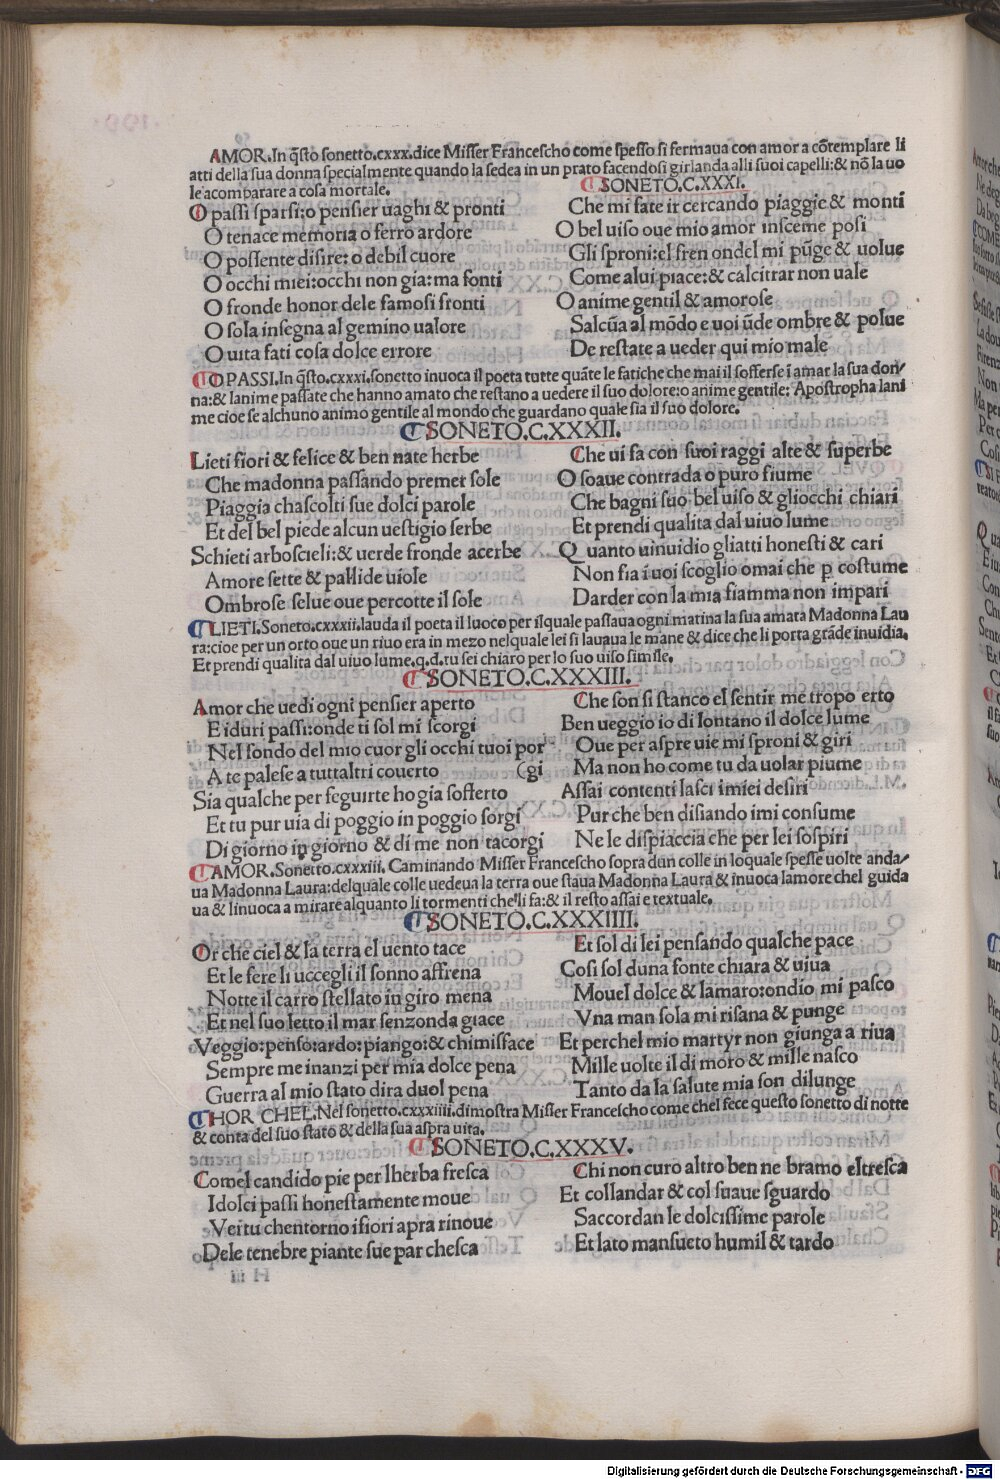 AMOR.In q̃sto sonetto.cxxx.dice Misser Francescho come spesso si fermaua con amor a cõtemplare li
atti della sua donna specialmente quando la sedea in un prato facendosi girlanda alli suoi capelli:& nõ la uo
le acomparare a cosa mortale.
¶SONETO.C.XXXI.
O passi sparsi:o pensier uaghi & pronti
O tenace memoria o ferro ardore
O possente disire: o debil cuore
O occhi miei:occhi non gia:ma fonti
O fronde honor dele famosi fronti
O sola insegna al gemino ualore
O uita fati cosa dolce errore
Che mi fate ir cercando piaggie & monti
O bel uiso oue mio amor insceme posi
Gli sproni:el fren ondel mi pũge & uolue
Come alui piace:& calcitrar non uale
O anime gentil & amorose
Salcũa al mõdo e uoi ũde ombre & polue
De restate a ueder qui mio male
¶O PASSI.In q̃sto.cxxxi.sonetto inuoca il poeta tutte quãte le fatiche che mai il sofferse ĩ amar la sua don/
na:& lanime passate che hanno amato che restano a uedere il suo dolore:o anime gentile: Apostropha lani
me cioe se alchuno animo gentile al mondo che guardano quale sia il suo dolore.
¶SONETO.C.XXXII.
Lieti fiori & felice & ben nate herbe
Che madonna passando premer sole
Piaggia chascolti sue dolci parole
Et del bel piede alcun uestigio serbe
Schieti arboscieli:& uerde fronde acerbe
Amore sette & pallide uiole
Ombrose selue oue percotte il sole
Che ui fa con suoi raggi alte & superbe
O soaue contrada o puro fiume
Che bagni suo bel uiso & gliocchi chiari
Et prendi qualita dal uiuo lume
Quanto uinuidio gliatti honesti & cari
Non fia ĩ uoi scoglio omai che p̱ costume
Darder con la mia fiamma non impari
¶LIETI.Soneto.cxxxii.lauda il poeta il luoco per ilquale passaua ogni matina la sua amata Madonna Lau
ra:cioe per un orto oue un riuo era in mezo nelquale lei si lauaua le mane & dice che li porta grãde inuidia.
Et prendi qualita dal uiuo lume.q.d.tu sei chiaro per lo suo uiso simile.
¶SONETO.C.XXXIII.
Amor che uedi ogni pensier aperto
E iduri passi:onde ti sol mi scorgi
Nel fondo del mio cuor gli occhi tuoi por
A te palese a tuttaltri couerto (gi
Sia qualche per seguirte ho gia sofferto
Et tu pur uia di poggio in poggio sorgi
Di giorno in giorno & di me non tacorgi
Che son si stanco el sentir me tropo erto
Ben ueggio io di lontano il dolce lume
Oue per aspre uie mi sproni & giri
Ma non ho come tu da uolar piume
Assai contenti lasci imiei desiri
Pur che ben disiando imi consume
Ne le dispiaccia che per lei sospiri
¶AMOR.Sonetto.cxxxiii. Caminando Misser Francescho sopra dun colle in loquale spesse uolte anda/
ua Madonna Laura:delquale colle uedeua la terra oue staua Madonna Laura & inuoca lamore chel guida
ua & linuoca a mirare alquanto li tormenti che li fa:& il resto assai e textuale.
¶SONETO.C.XXXIIII.
Or che ciel & la terra el uento tace
Et le fere li uccegli il sonno affrena
Notte il carro stellato in giro mena
Et nel suo letto il mar senzonda giace
Veggio:penso:ardo:piango:& chimisface
Sempre me inanzi per mia dolce pena
Guerra al mio stato dira duol pena
Et sol di lei pensando qualche pace
Cosi sol duna fonte chiara & uiua
Mouel dolce & lamaro:ondio mi pasco
Vna man sola mi risana & punge
Et perchel mio martyr non giunga a riua
Mille uolte il di moro & mille nasco
Tanto da la salute mia son dilunge
¶HOR CHEL.Nel sonetto.cxxxiiii.dimostra Misser Francescho come chel fece questo sonetto di notte
& conta del suo stato & della sua aspra uita.
¶SONETO.C.XXXV.
Comel candido pie per lherba fresca
Idolci passi honestamente moue
Vertu chentorno ifiori apra rinoue
Dele tenebre piante sue par chesca
Chi non curo altro ben ne bramo eltresca
Et collandar & col suaue sguardo
Saccordan le dolcissime parole
Et lato mansueto humil & tardo
Digitalisierung gefördert durch die Deutsche Forschungsgemeinschaft - DFG